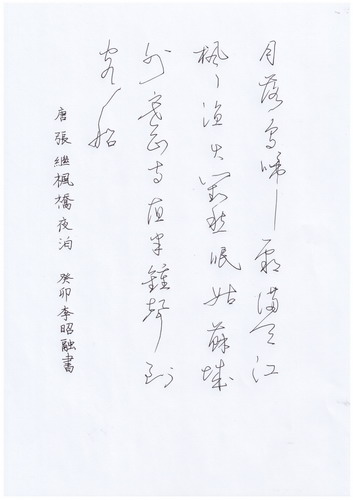 月落烏啼霜滿天江
楓漁火對愁眠姑蘇城
外寒山寺夜半鐘聲到
客船
唐張繼楓橋夜泊 癸卯李昭融書